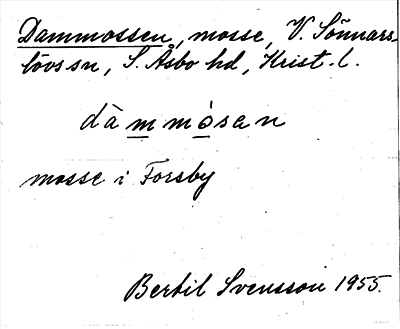 Dammossen, mosse, V. Sönnars-
lövs sn, S. Åsbo hd, Krist. l.
dàmmósen
mosse i Forsby
Bertil Svensson 1955.